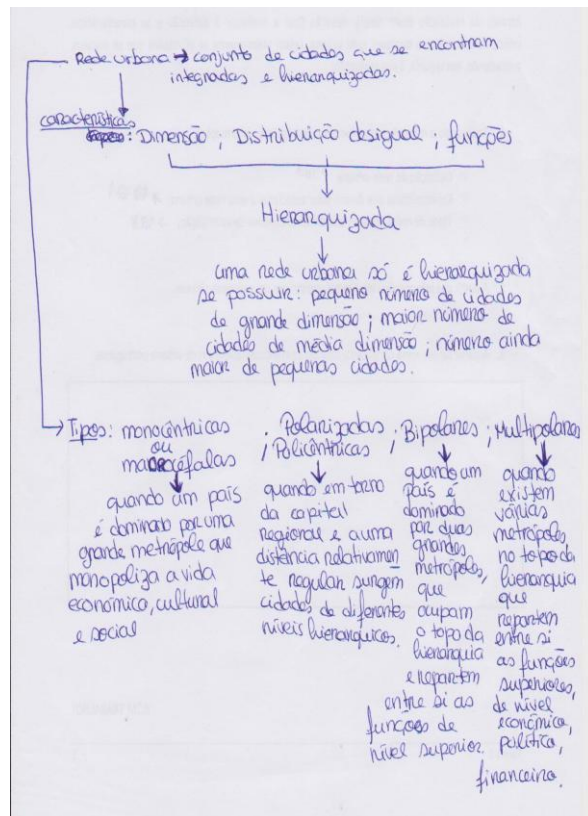 Rede urbana → conjunto de cidades que se encontram
integradas e hierarquizadas.
características
: Dimensão ; Distribuição desigual ; funções
Hierarquizada
uma rede urbana só é hierarquizada
se possuir: pequeno número de cidades
de grande dimensão ; maior número de
cidades de média dimensão ; número ainda
maior de pequenas cidades.
Tipos: monocêntricas
ou
macrocéfalas
quando um país
é dominado por uma
grande metrópole que
monopoliza a vida
económica, cultural
e social
; Polarizadas
/ Policêntricas
quando em torno
da capital
regional e a uma
distância relativamen
te regular surgem
cidades de diferentes
níveis hierárquicos.
; Bipolares
quando um
país é
dominado
por duas
grandes
metrópoles,
que
ocupam
o topo da
hierarquia
e repartem
entre si as
funções de
nível superior.
; Multipolares
quando
existem
várias
metrópoles
no topo da
hierarquia
que
repartem
entre si
as funções
superiores,
de nível
económico,
política,
financeiro.